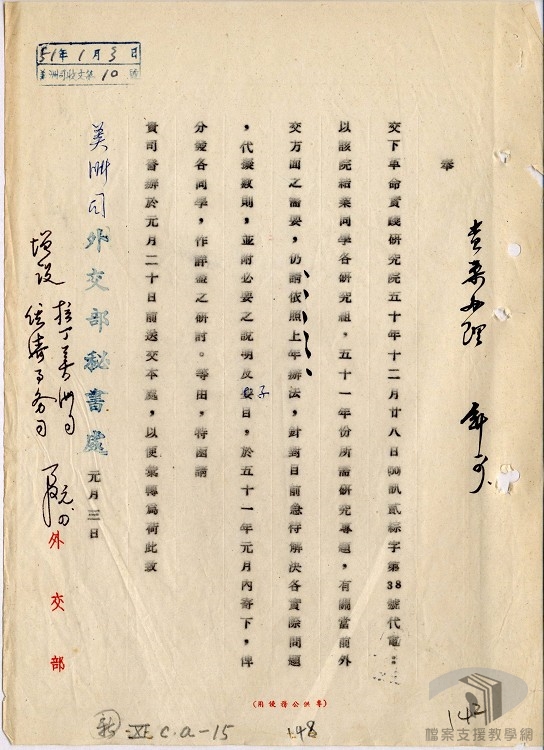 51年1月3日
美洲司收文第10號
奉
交下革命實踐研究院五十年十二月廿八日(50)訊貳綜字第38號代電：
以該院結業同學各研究組，五十一年份所需研究專題，有關當前外
交方面之需要，仍請依照上年辦法，針對目前急待解決各實際問題
，代擬數則，並附必要之說明及要目，於五十一年元月內寄下，俾
子
分發各同學，作詳盡之研討。等由，特函請
貴司書辦於元月二十日前送交本處，以便彙轉為荷此致
美洲司
外交部秘書處
元月三日
增設
拉丁美洲司
經濟事務司
外交部
(專供公務使用)
XI C.a-15
148
檔案支援教學網